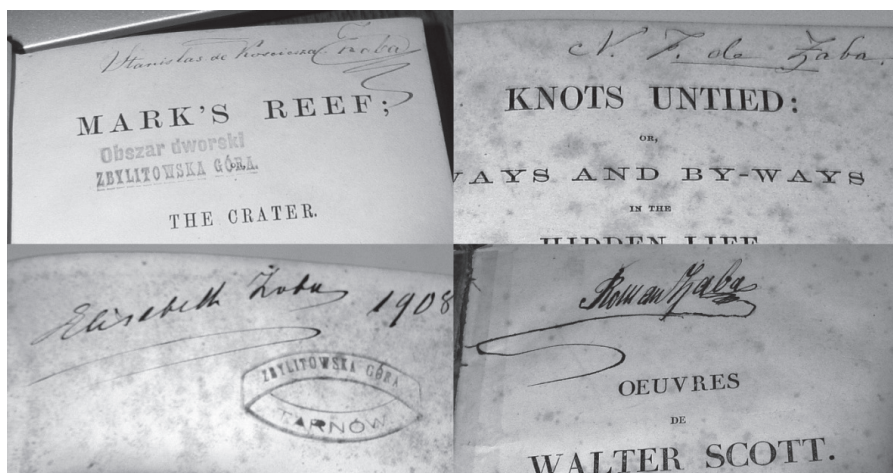 Stanislas de Kosmusza Żaba
MARK'S REEF;
Obszar dworski
ZBYLITOWSKA GÓRA.
OR,
THE CRATER.
N. F. de Żaba.
KNOTS UNTIED:
OR,
WAYS AND BY-WAYS
IN THE
HIDDEN LIFE
Elisabeth Żaba 1908
ZBYLITOWSKA GÓRA
TARNÓW
Roman Żaba
OEUVRES
DE
WALTER SCOTT.